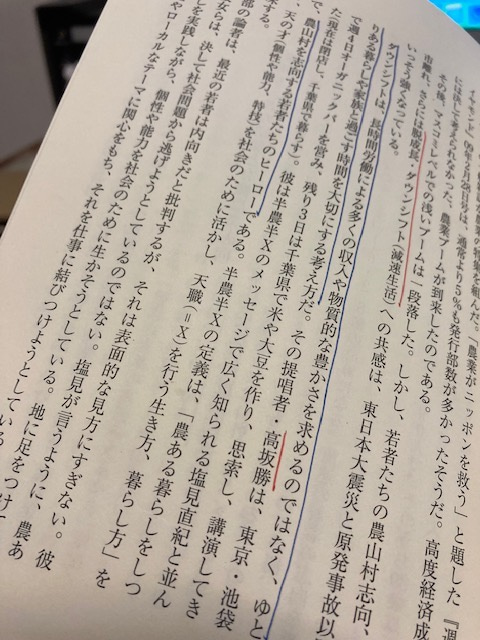 特集を組んだ。「農業がニッポンを救う」と題した『週
イヤモンド』09年2月28日号は、通常より5%も発行部数が多かったそうだ。高度経済成
には決して考えられなかった。農業ブームが到来したのである。
その後、マスコミレベルでの浅いブームは一段落した。しかし、若者たちの農山村志向、
市離れ、さらには脱成長、ダウンシフト（減速生活）への共感は、東日本大震災と原発事故以
いっそう強くなっている。
ダウンシフトは、長時間労働による多くの収入や物質的な豊かさを求めるのではなく、ゆと
りある暮らしや家族と過ごす時間を大切にする考え方だ。その提唱者・高坂勝は、東京・池袋
で週4日オーガニックバーを営み、残り3日は千葉県で米や大豆を作り、思索し、講演してき
た（現在は閉店し、千葉県で暮らす）。彼は半農半Xのメッセージで広く知られる塩見直紀と並ん
で、農山村を志向する若者たちのヒーローである。半農半Xの定義は、「農ある暮らしをしつ
、天の才（個性や能力、特技）を社会のために活かし、天職（＝X）を行う生き方、暮らし方」を
する。
部の論者は、最近の若者は内向きだと批判するが、それは表面的な見方にすぎない。彼
女らは、決して社会問題から逃げようとしているのではない。塩見が言うように、農あ
しを実践しながら、個性や能力を社会のために生かそうとしている。地に足をつけて
やローカルなテーマに関心をもち、それを仕事に結びつけようとしている